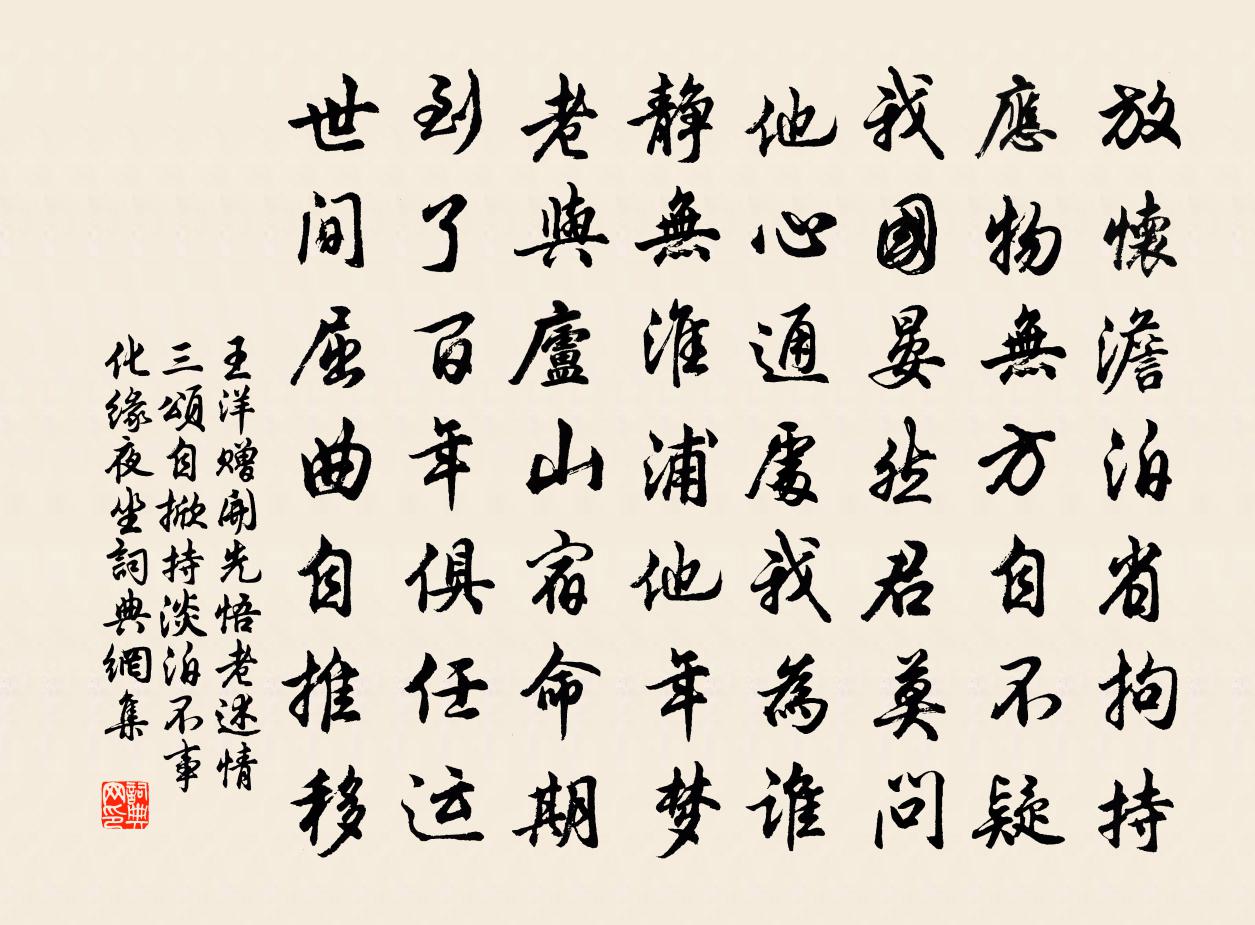 放懷澹泊省拘持
應物無方自不疑
我國晏然君莫问
他心通處我為誰
静無淮浦他年梦
老與廬山宿命期
到了百年俱任运
世间屈曲自推移
王洋贈開先悟老述情
三頌自掀持淡泊不事
化緣夜坐詞典網集
詞典网印